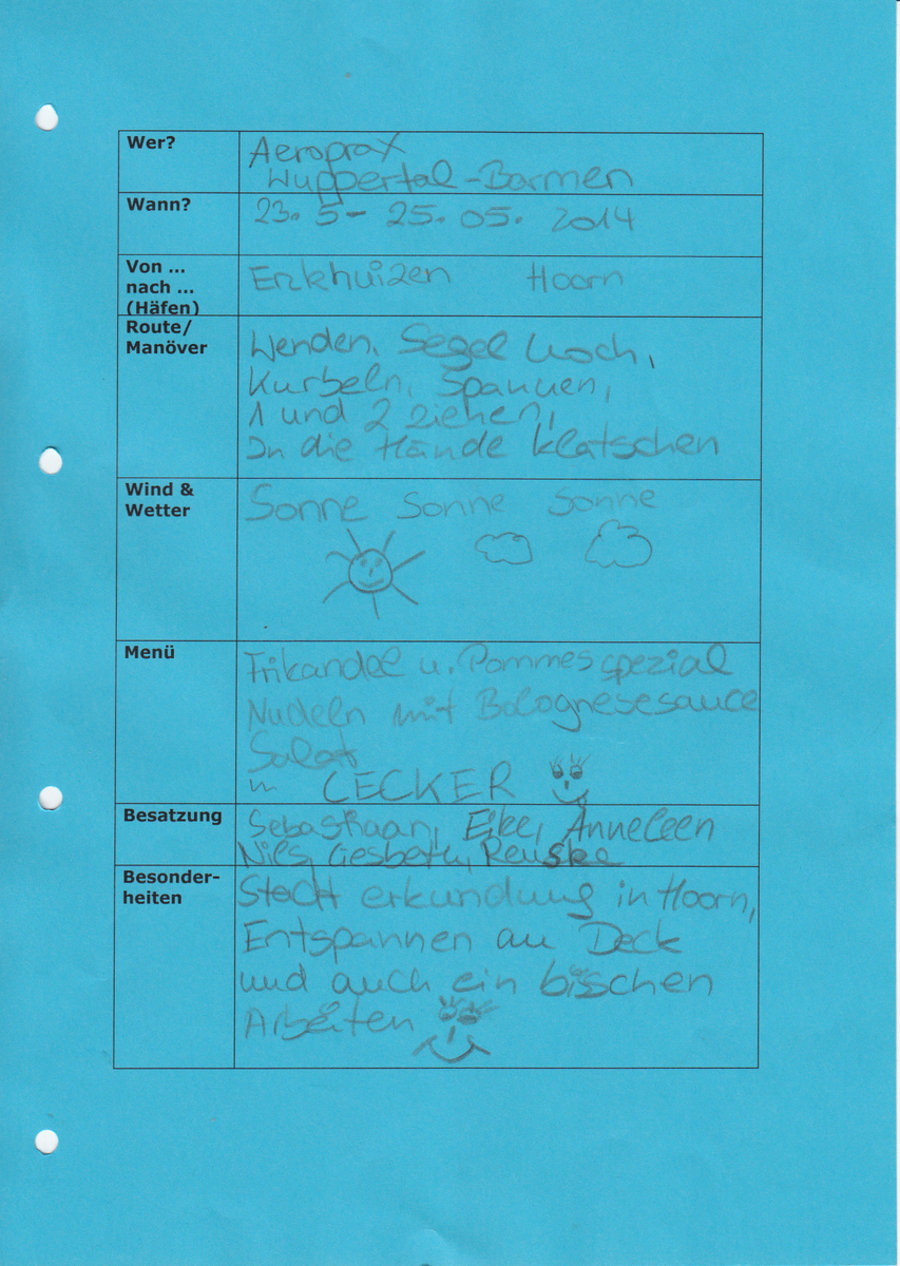 Wer?
Aeroprax
Wuppertal-Barmen
Wann?
23. 5 - 25. 05. 2014
Von ...
nach ...
(Häfen)
Enkhuizen Hoorn
Route/
Manöver
Wenden, Segel hoch,
Kurbeln, Spannen,
1 und 2 ziehen,
In die Hände klatschen
Wind &
Wetter
Sonne Sonne Sonne
Menü
Frikandel u. Pommes spezial
Nudeln mit Bolognesesauce
Salat
LECKER
Besatzung
Sebastiaan, Eike, Anneleen
Nils, Liesbeth, Renske
Besonder-
heiten
Stadt erkundung in Hoorn,
Entspannen an Deck
und auch ein bisschen
Arbeiten